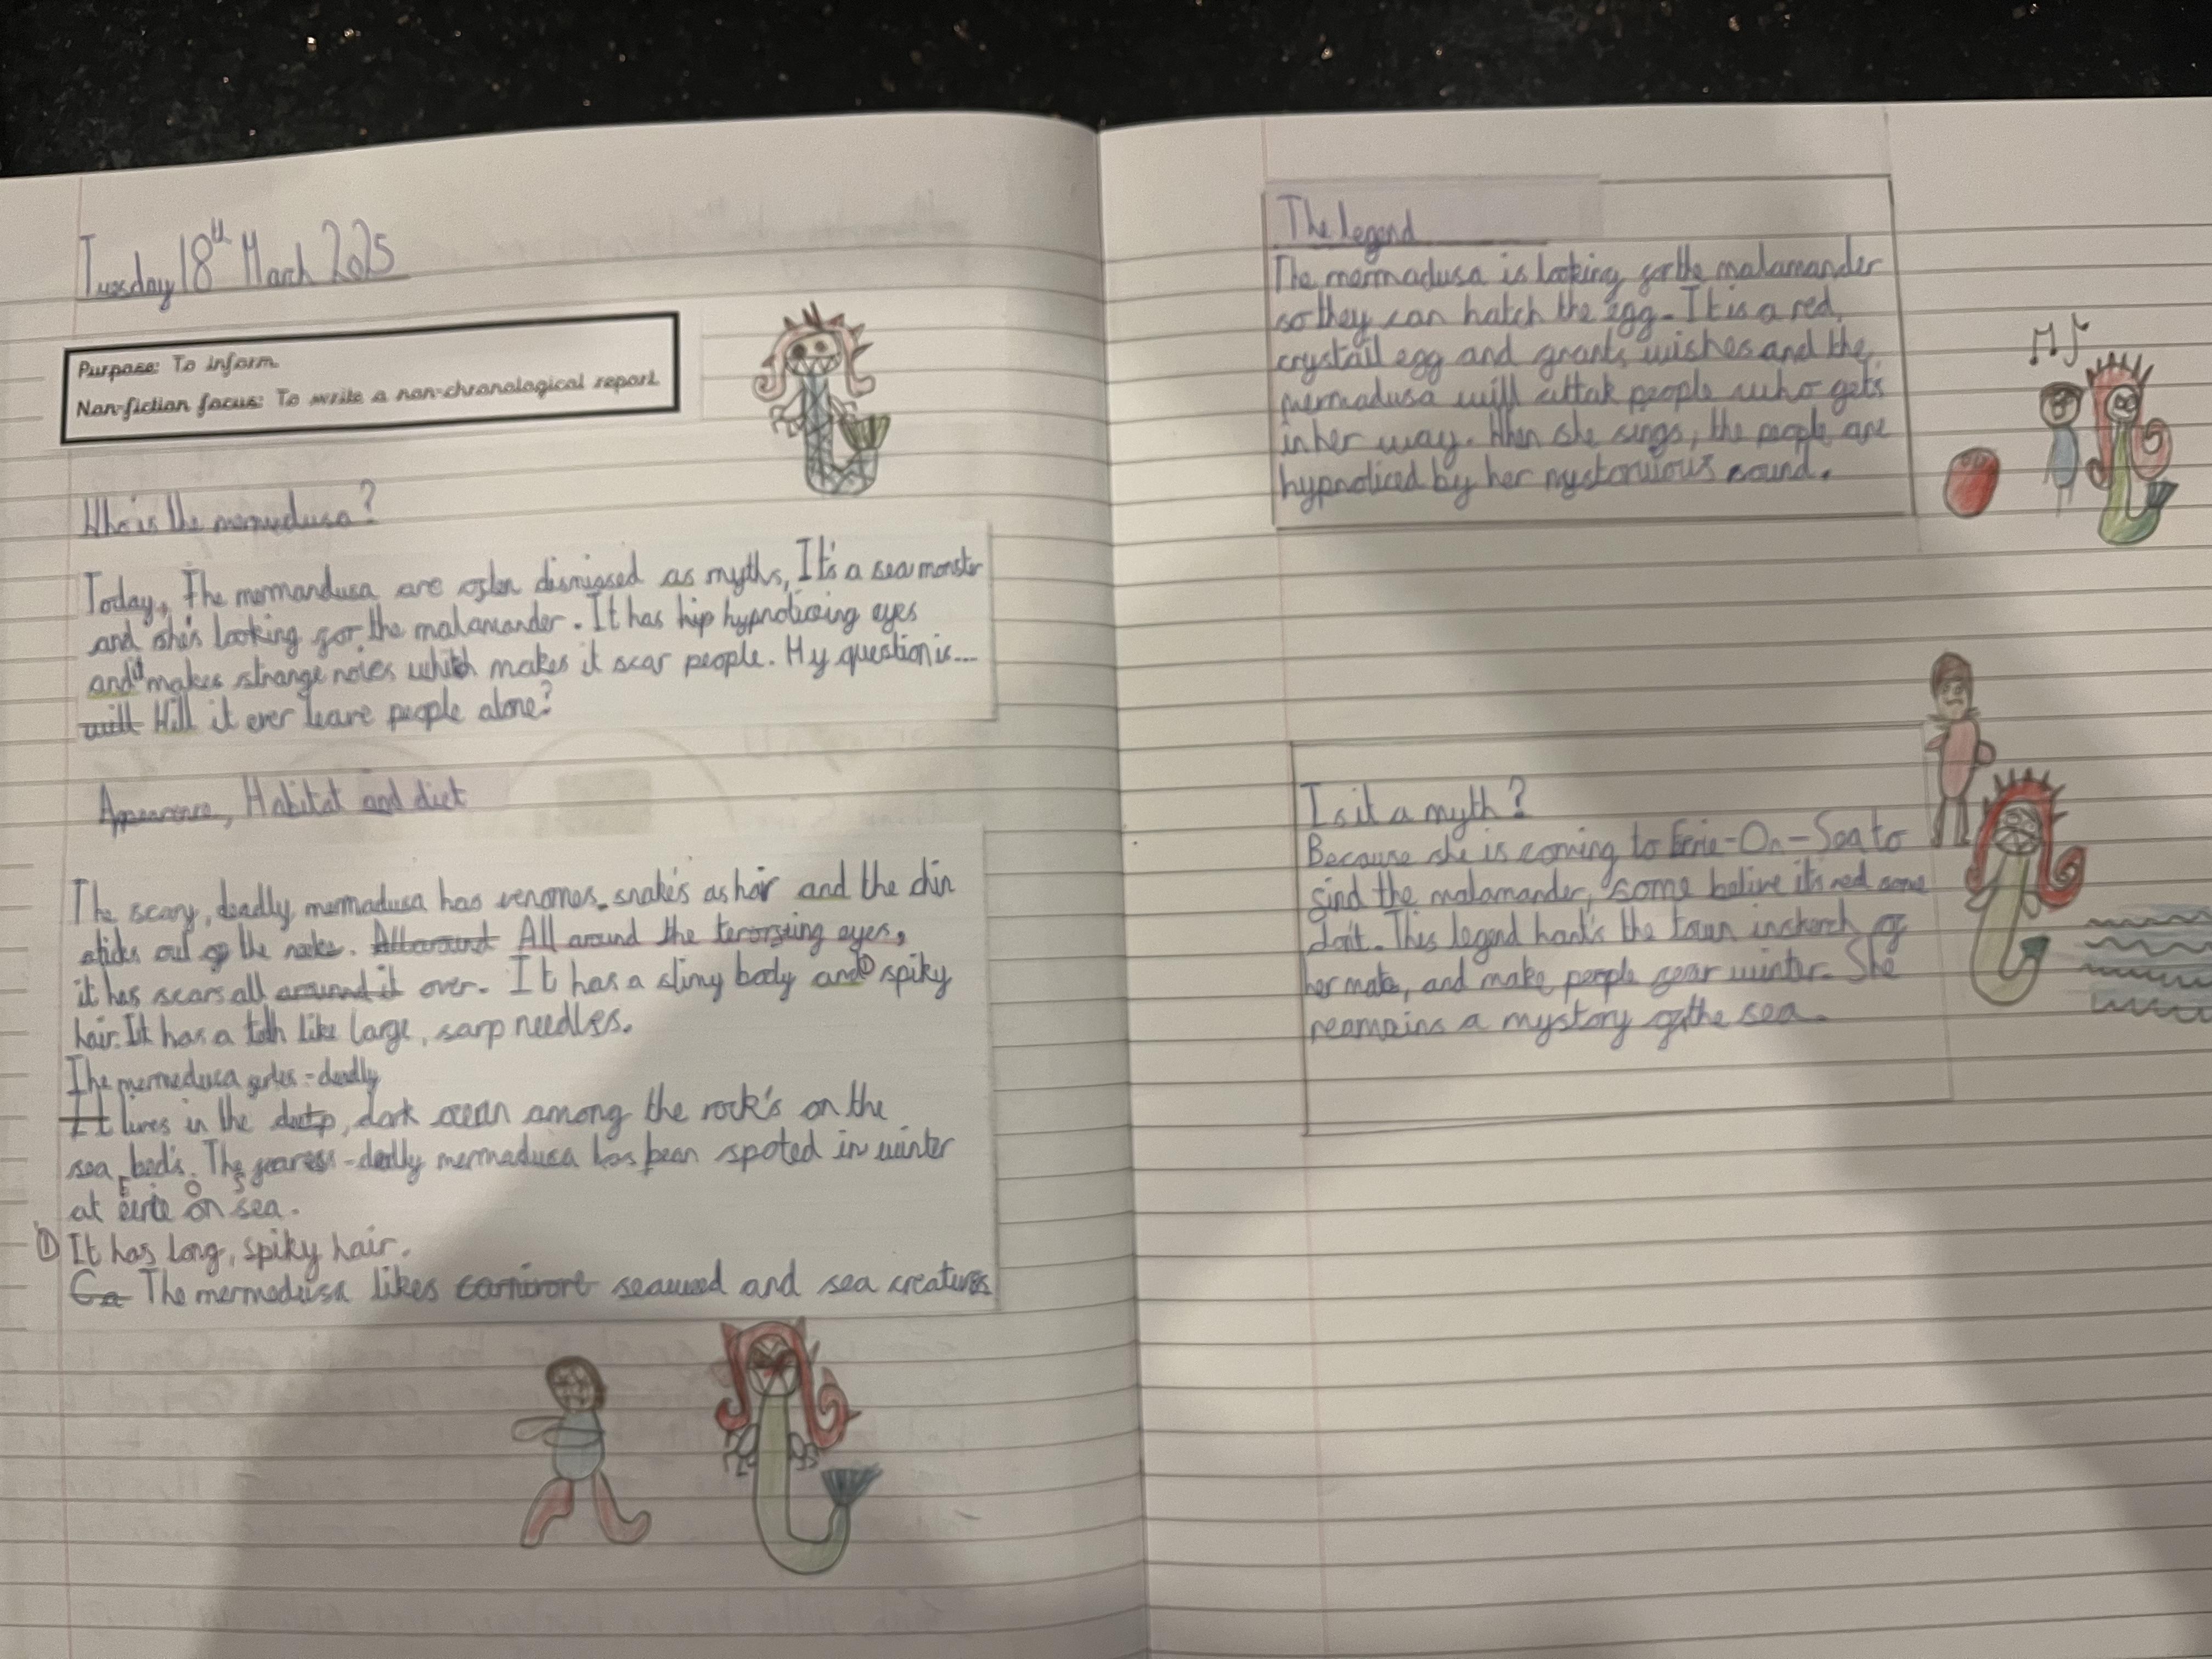 Tuesday 18th March 2025
Purpose: To inform
Non-fiction focus: To write a non-chronological report
Who is the mermadusa?
Today, The mermandusa are often dismissed as myths, It's a sea monster
and she's looking for the malamander. It has hip hypnoticing eyes
and makes strange noies which makes it scar people. My question is...
will Will it ever leave people alone?
Appearence, Habitat and diet
The scary, deadly mermadusa has venomes snake's as hair and the chin
sticks out of the neke. All around All around the terorsting eyes,
it has scars all around it over. It has a slimy body and ① spiky
hair. It has a toth like large, sarp needles.
The mermedusa -deadly
It lives in the deep, dark ocean among the rock's on the
sea bed's. The -deadly mermadusa has bean spoted in winter
at Eerie On Sea.
① It has long, spiky hair.
Ca The mermedusa likes carnivore seaweed and sea creatures
The legend
The mermadusa is looking for the malamander
so they can hatch the egg. It is a red,
crystail egg and grants wishes and the
mermadusa will attak people who gets
in her way. When she sings, the people are
hypnoticed by her mystoruious sound.
Is it a myth?
Because she is coming to Eerie-On-Sea to
find the malamander, some belive it's red some
don't. This legend hant's the town inskerch of
her mate, and make people fear winter. She
reamains a mystory of the sea.